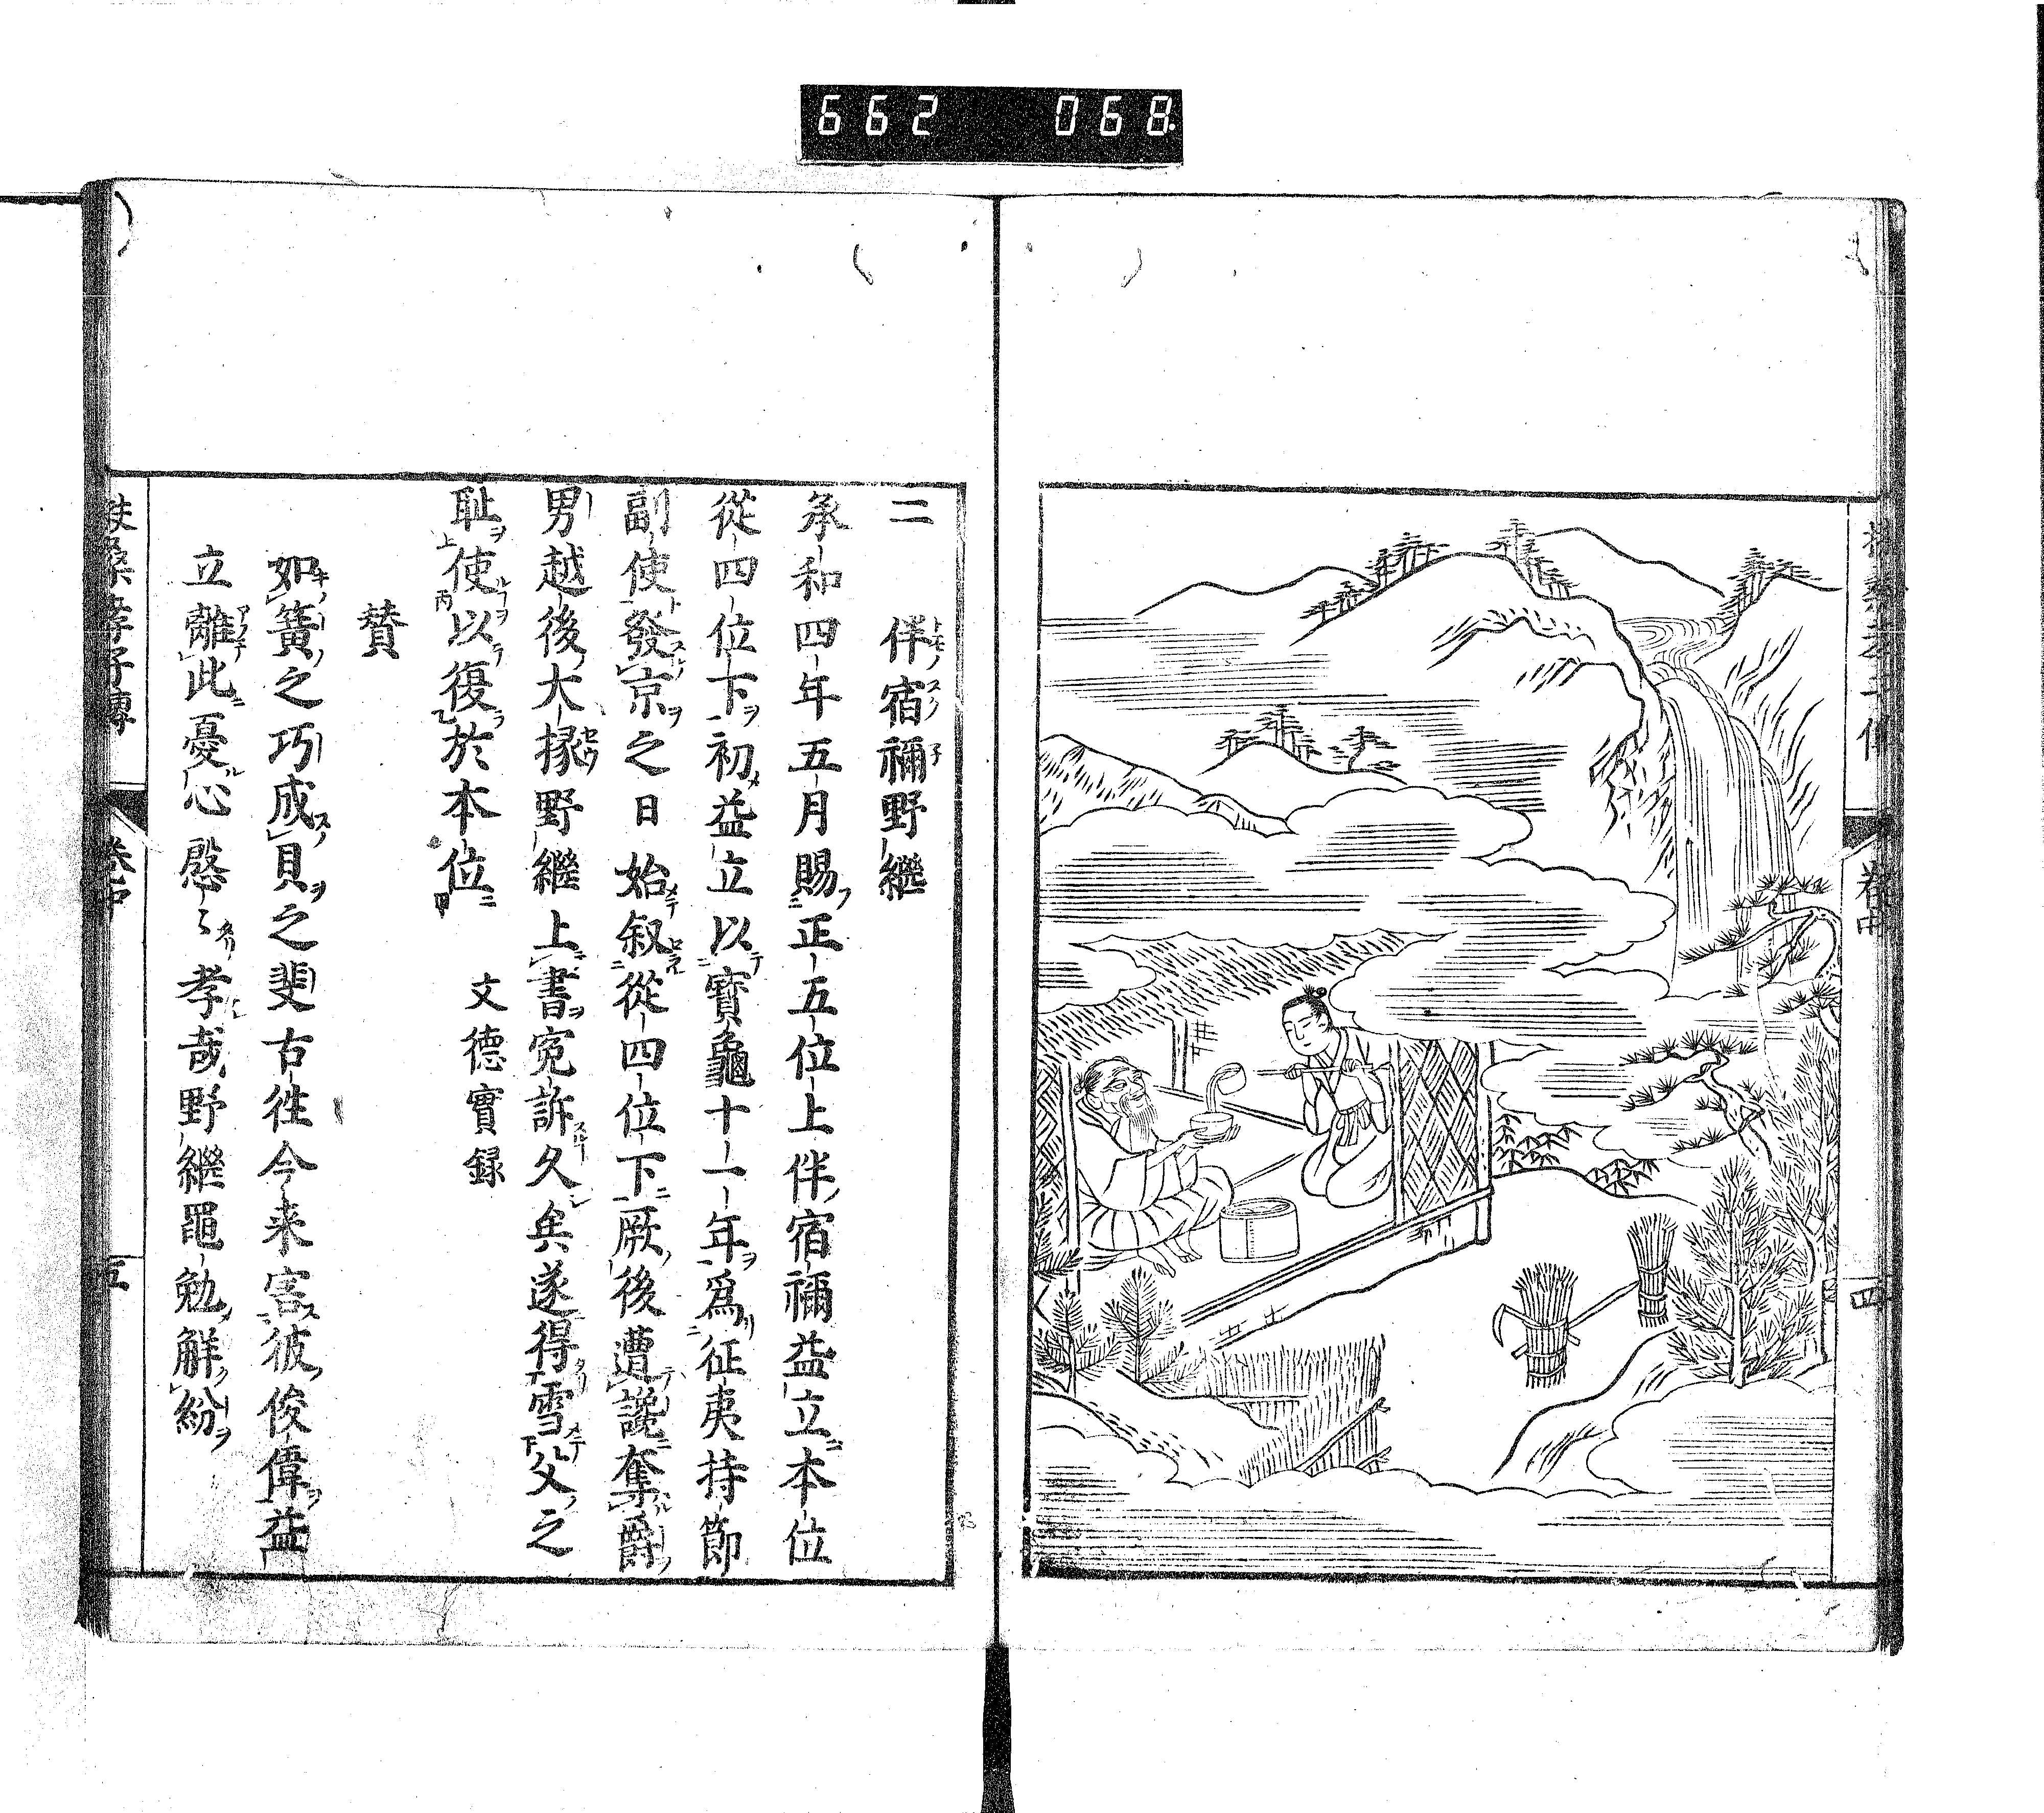 662 068
扶桑孝子傳
卷中
四
二 伴宿禰野繼
承和四年五月賜正五位上伴宿禰益立本位
從四位下初益立以寳龜十一年爲征夷持節
副使發京之日始叙從四位下厥後遭讒奪爵
男越後大掾野繼上書寃訴久矣遂得雪父之
耻使以復於本位 文德實録
賛
如簧之巧成貝之斐古徃今来害彼俊偉益
立離此憂心慇〻孝哉野繼黽勉解紛
扶桑孝子傳
卷中
五